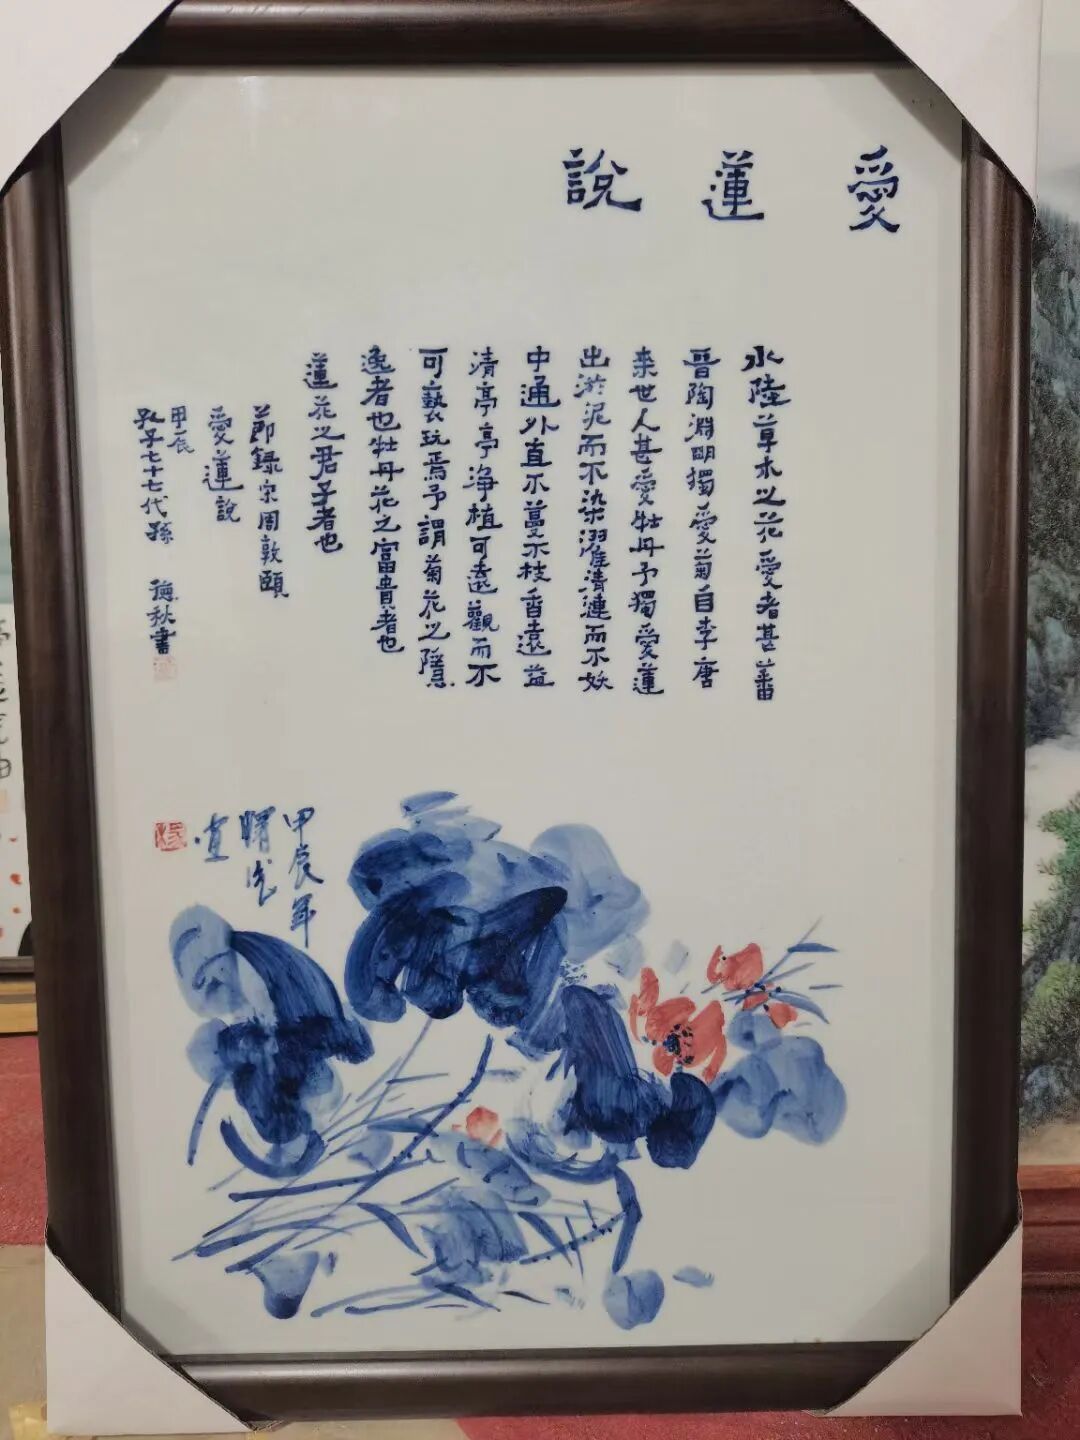 愛蓮說
水陸草木之花愛者甚蕃
晉陶淵明獨愛菊自李唐
来世人甚愛牡丹予獨愛蓮
出淤泥而不染濯清漣而不妖
中通外直不蔓不枝香遠益
清亭亭净植可遠觀而不
可褻玩焉予謂菊花之隱
逸者也牡丹花之富貴者也
蓮花之君子者也
節錄宋周敦頤
愛蓮說
甲辰
孔子七十七代孫 德秋書
甲辰年